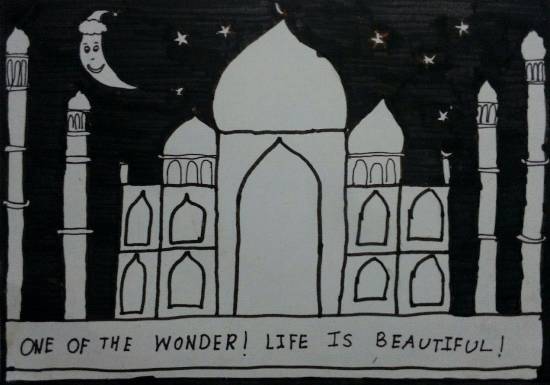 ONE OF THE WONDER! LIFE IS BEAUTIFUL!